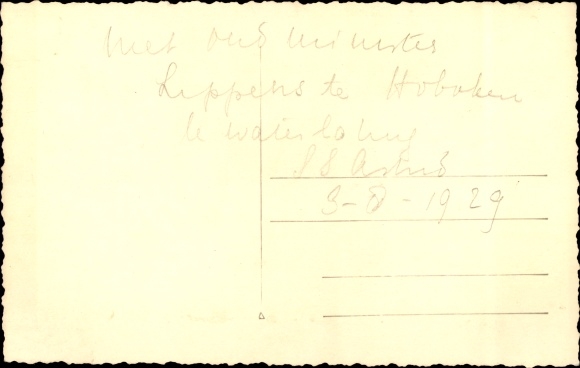 met oud minister
Lippens te Hoboken
te waterlating
SS Astrid
3-8-1929